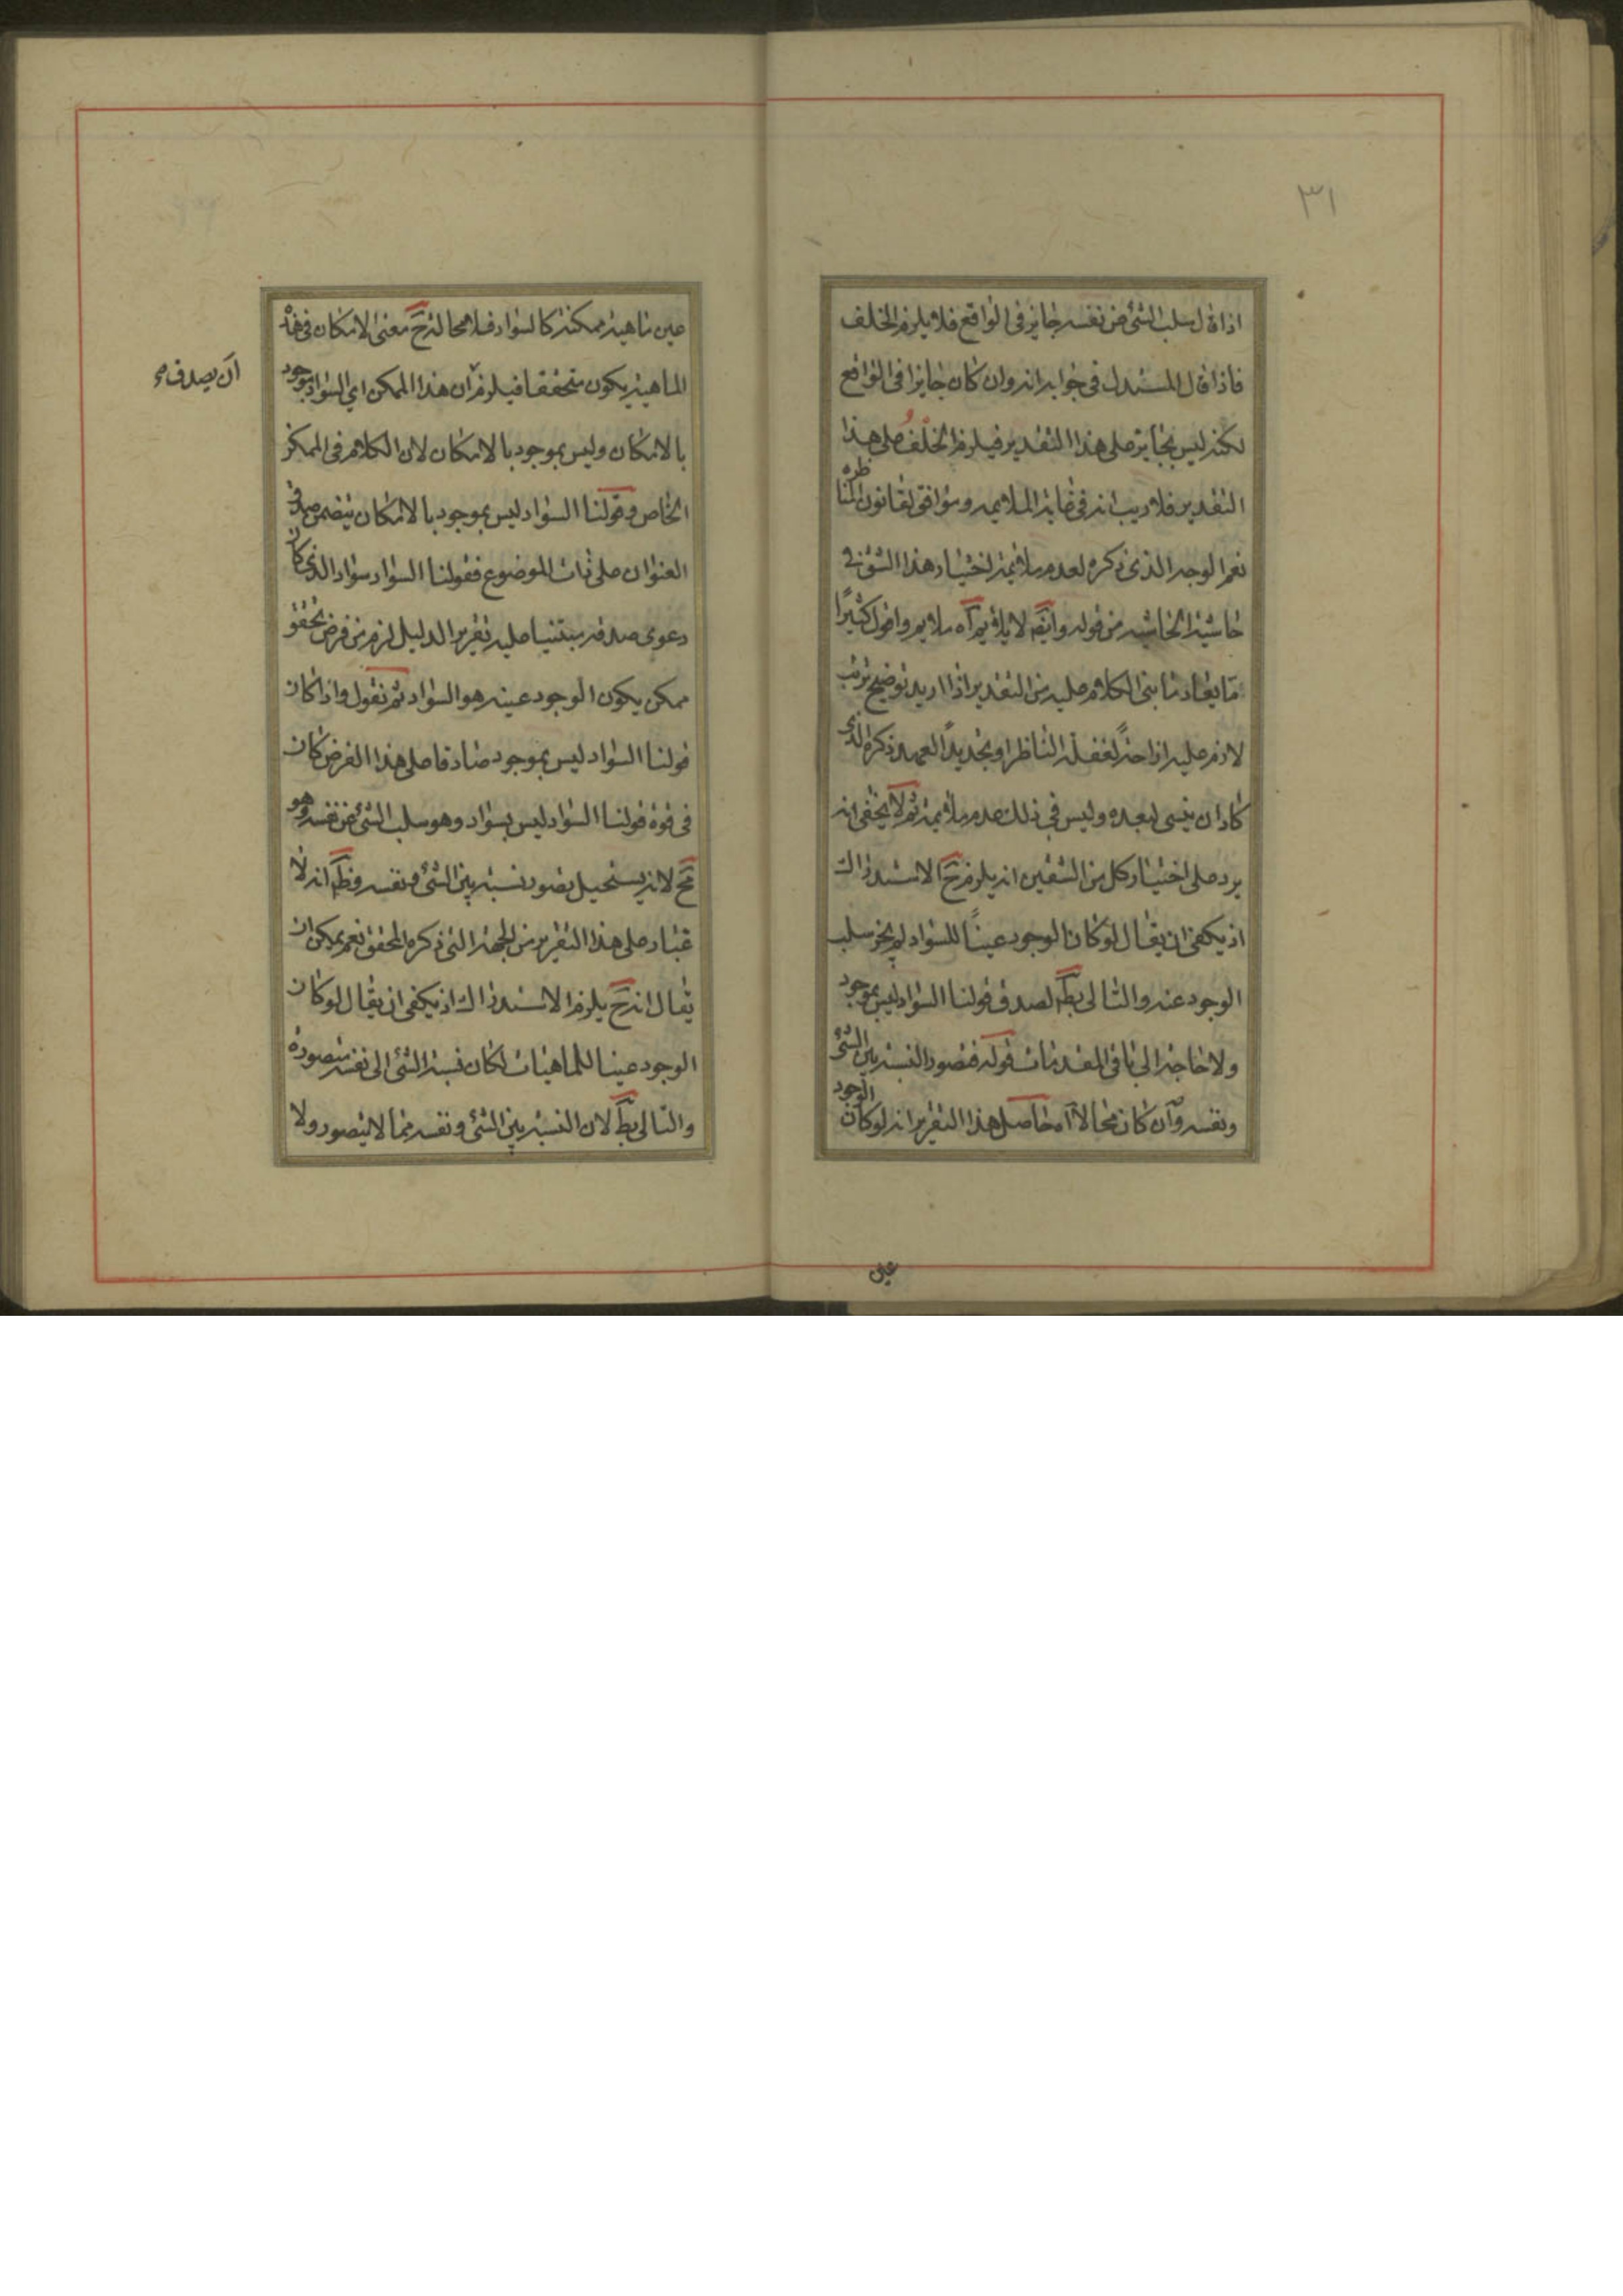 ٣١
اذا قال سلب الشئ عن نفسه جايز فى الواقع فلا يلزم الخلف
فاذا قال المستدل فى جوابه انه وان كان جايزا فى الواقع
لكنه ليس بجايز على هذا التقدير فيلزم الخلف على هذا
التقدير فلا ريب انه فى غاية الملايمه وموافق لقانون المناظره
نعم الوجه الذى ذكره لعدم ملايمة اختيار هذا الشق فى
حاشية الحاشيه من قوله وايضا لا يلايم آه ملايم واقول كثيرًا
مّا يعاد ما بنى الكلام عليه من التقدير اذا اريد توضيح ترتب
لازم عليه ازاحةً لغفلة الناظر او تجديدًا لعهد ذكره الذى
كاد ان ينسى لبعده وليس فى ذلك عدم ملايمة ثم لا يخفى انه
يرد على اختيار كل من الشقين انه يلزم ح الاستدراك
اذ يكفى ان يقال لو كان الوجود عينًا للسواد لم يجز سلب
الوجود عنه والتالى بط لصدق قولنا السواد ليس بموجود
ولا حاجة الى باقى المقدمات قوله فتصور النسبة بين الشئ
ونفسه وان كان محالا آه حاصل هذا التقرير انه لو كان الوجود
عين
عين ماهية ممكنة كالسواد فلا محالة ح معنى الامكان فى هذه
الماهية يكون متحققا فيلزم ان هذا الممكن اي السواد موجود
ان يصدق صح
بالامكان وليس بموجود بالامكان لان الكلام فى الممكن
الخاص وقولنا السواد ليس بموجود بالامكان يتضمن صدق
العنوان على ذات الموضوع فقولنا السواد سواد الذى كان
دعوى صدقه مبتنيا عليه تقرير الدليل لزم من فرض تحقق
ممكن يكون الوجود عينه هو السواد ثم نقول واذا كان
قولنا السواد ليس بموجود صادقا على هذا الفرض كان
فى قوة قولنا السواد ليس بسواد وهو سلب الشئ عن نفسه وهو
مح لانه يستحيل تصور نسبة بين الشئ ونفسه وظ انه لا
غبار على هذا التقرير من الجهة التى ذكره المحقق نعم يمكن ان
يقال انه ح يلزم الاستدراك اذ يكفى ان يقال لو كان
الوجود عينا للماهيات لكان نسبة الشئ الى نفسه متصورة
والتالى بط لان النسبة بين الشئ ونفسه مما لا يتصور ولا